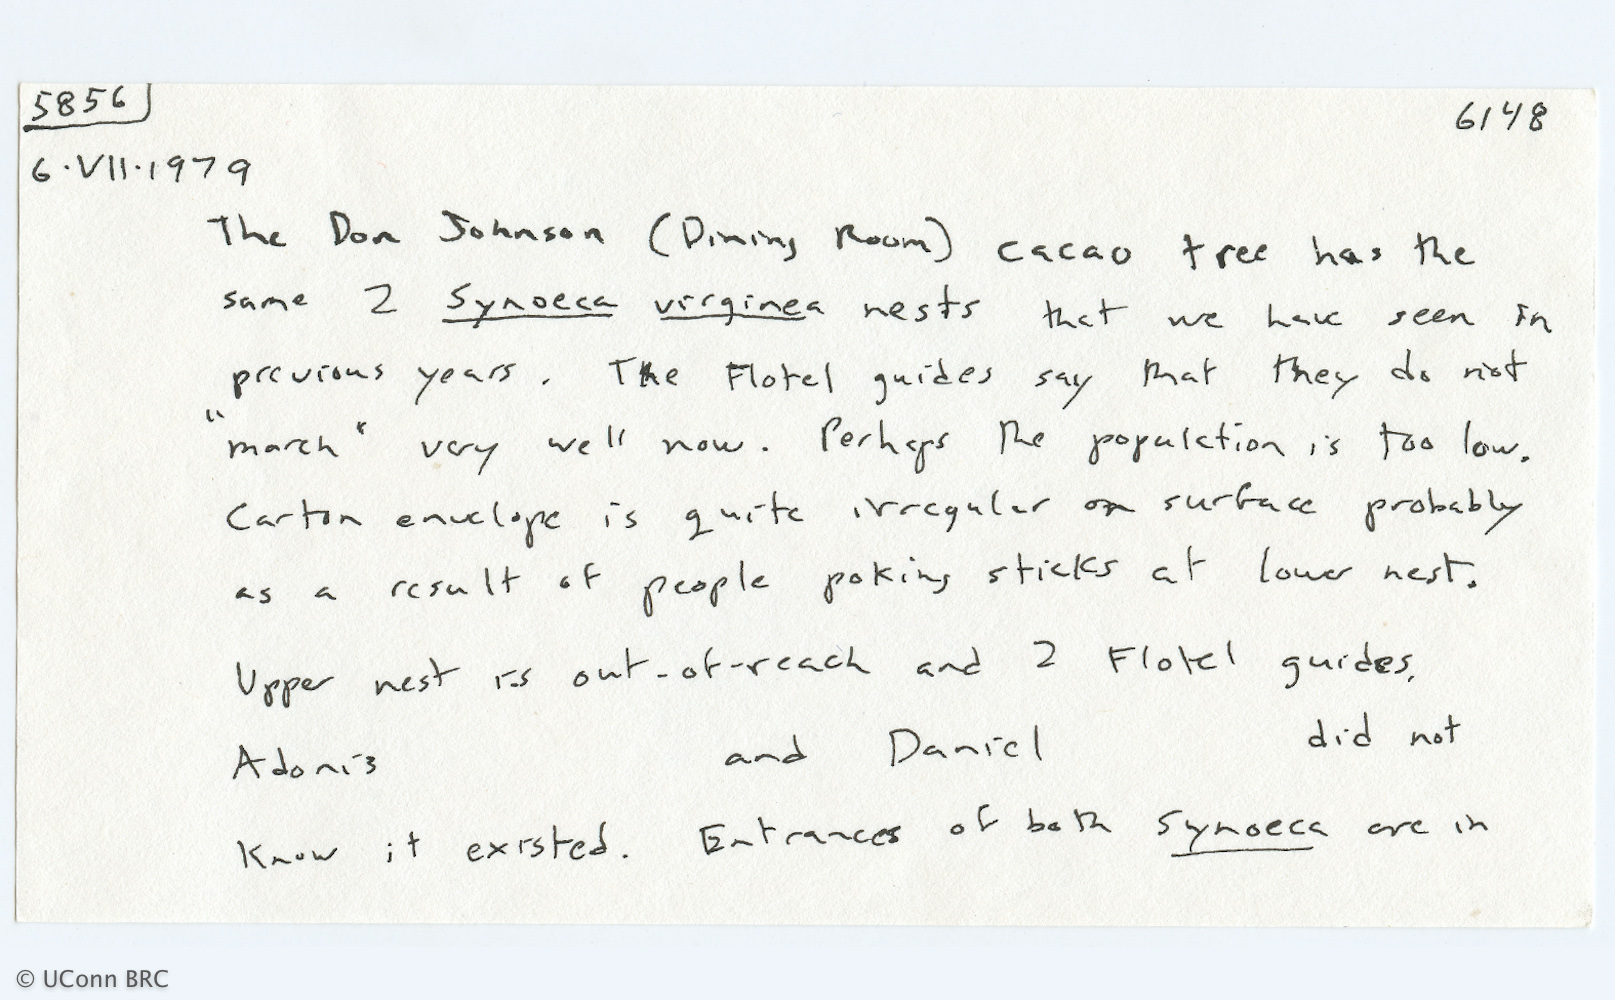 5856
6148
6·VII·1979
The Don Johnson (Dining Room) cacao tree has the
same 2 Synoeca virginea nests that we have seen in
previous years. The Flotel guides say that they do not
"march" very well now. Perhaps the population is too low.
Carton envelope is quite irregular on surface probably
as a result of people poking sticks at lower nest.
Upper nest is out-of-reach and 2 Flotel guides,
Adonis and Daniel did not
know it existed. Entrances of both Synoeca are in
© UConn BRC